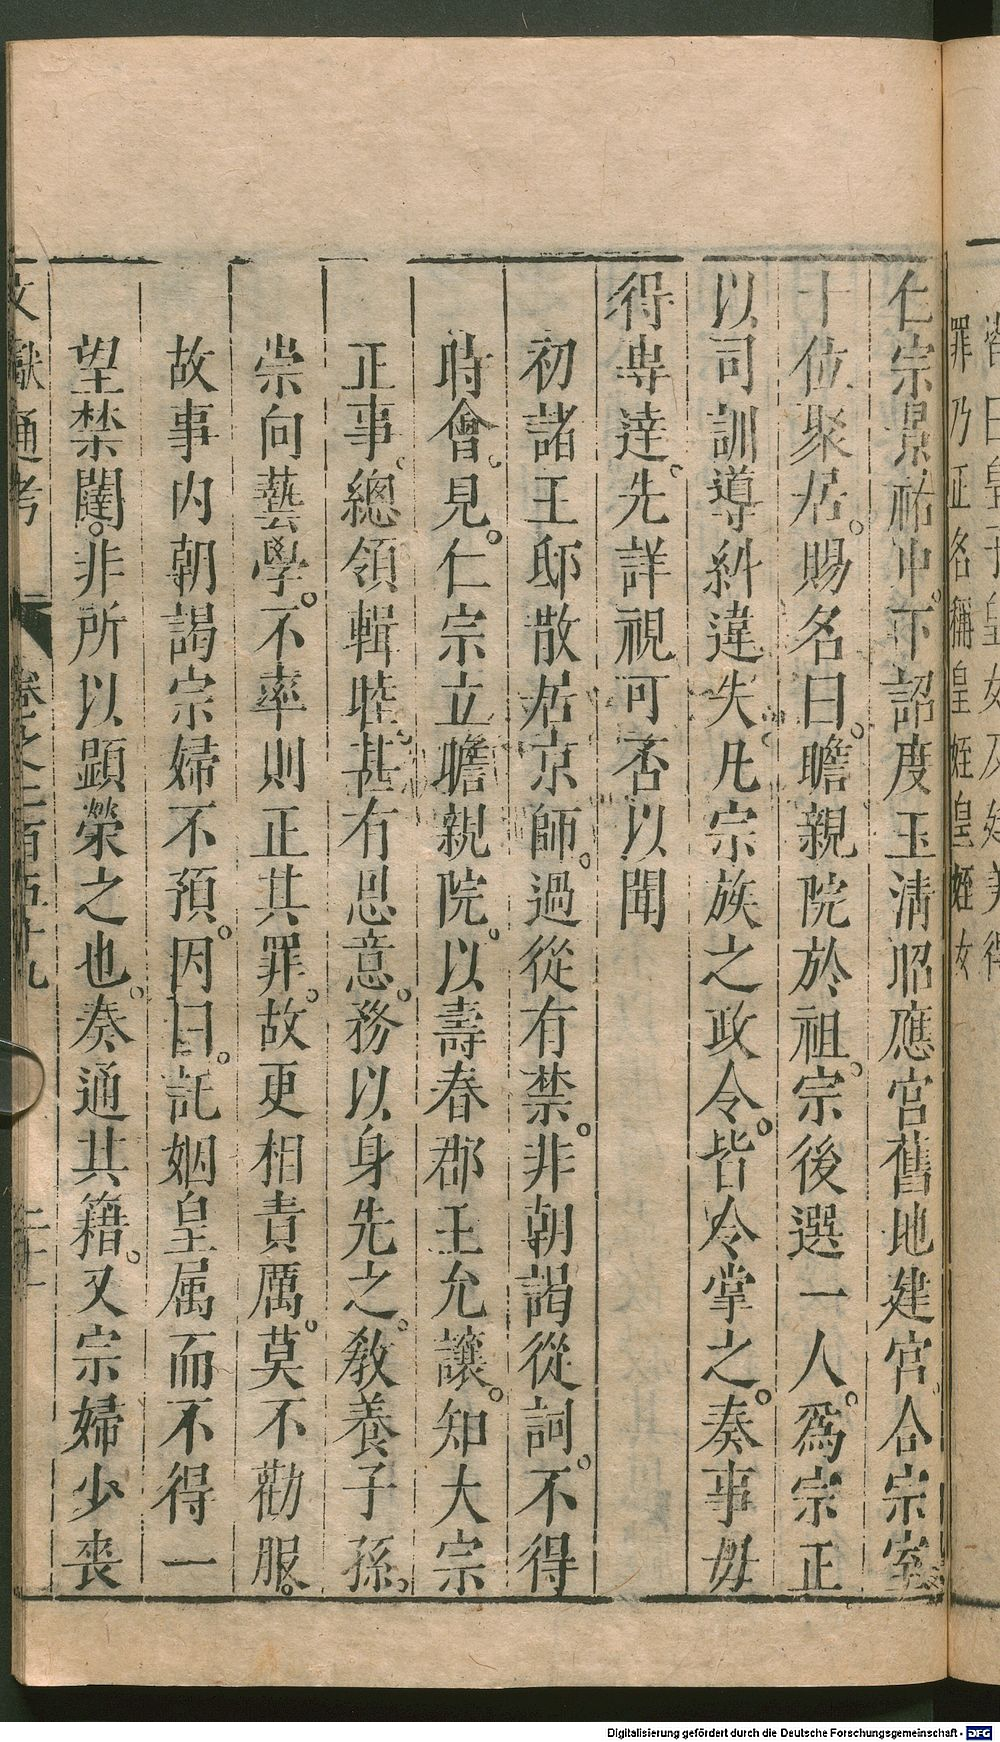 仁宗景祐中。下詔度玉清昭應宮舊地建宮。合宗室
十位聚居。賜名曰。睦親院於祖。宗後選一人。爲宗正
以司訓導糾違失。凡宗族之政令。皆令掌之。奏事毋
得専達。先詳視可否以聞
初諸王邸散居京師。過從有禁。非朝謁從詞。不得
時會。見。仁宗立瞻親院。以壽春郡王允讓。知大宗
正事。總領輯睦。甚有恩意。務以身先之。教養子孫。
崇向藝學。不率則正其罪。故更相責厲。莫不勸服。
故事内朝謁宗婦不預。因曰。託姻皇属而不得一
望禁闥。非所以顕榮之也。奏通其籍。又宗婦少喪
文獻通考 卷之二百五十九
罪乃正名稱皇姪皇姪女
Digitalisierung gefördert durch die Deutsche Forschungsgemeinschaft - DFG